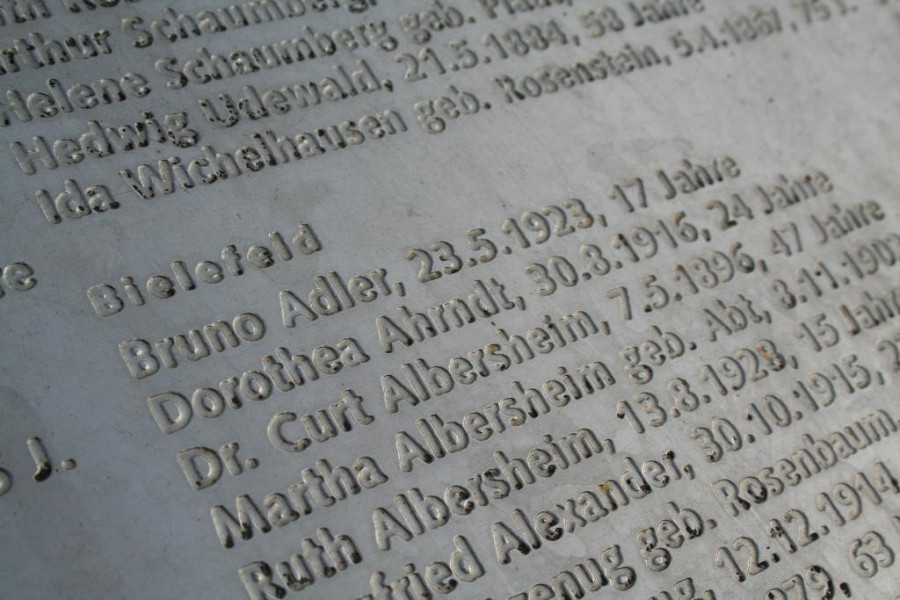 Arthur Schaumberg
Helene Schaumberg geb.
Hedwig Udewald, 21.5.1884, 58 Jahre
Ida Wichelhausen geb. Rosenstein, 5.1.1867, 75 J.
Bielefeld
Bruno Adler, 23.5.1923, 17 Jahre
Dorothea Ahrndt, 30.8.1916, 24 Jahre
Dr. Curt Albersheim, 7.5.1896, 47 Jahre
Martha Albersheim geb. Abt, 8.11.190
Ruth Albersheim, 13.8.1928, 15 Jahr
fried Alexander, 30.10.1915, 2
zenug geb. Rosenbaum,
12.12.1914
979, 63
J.